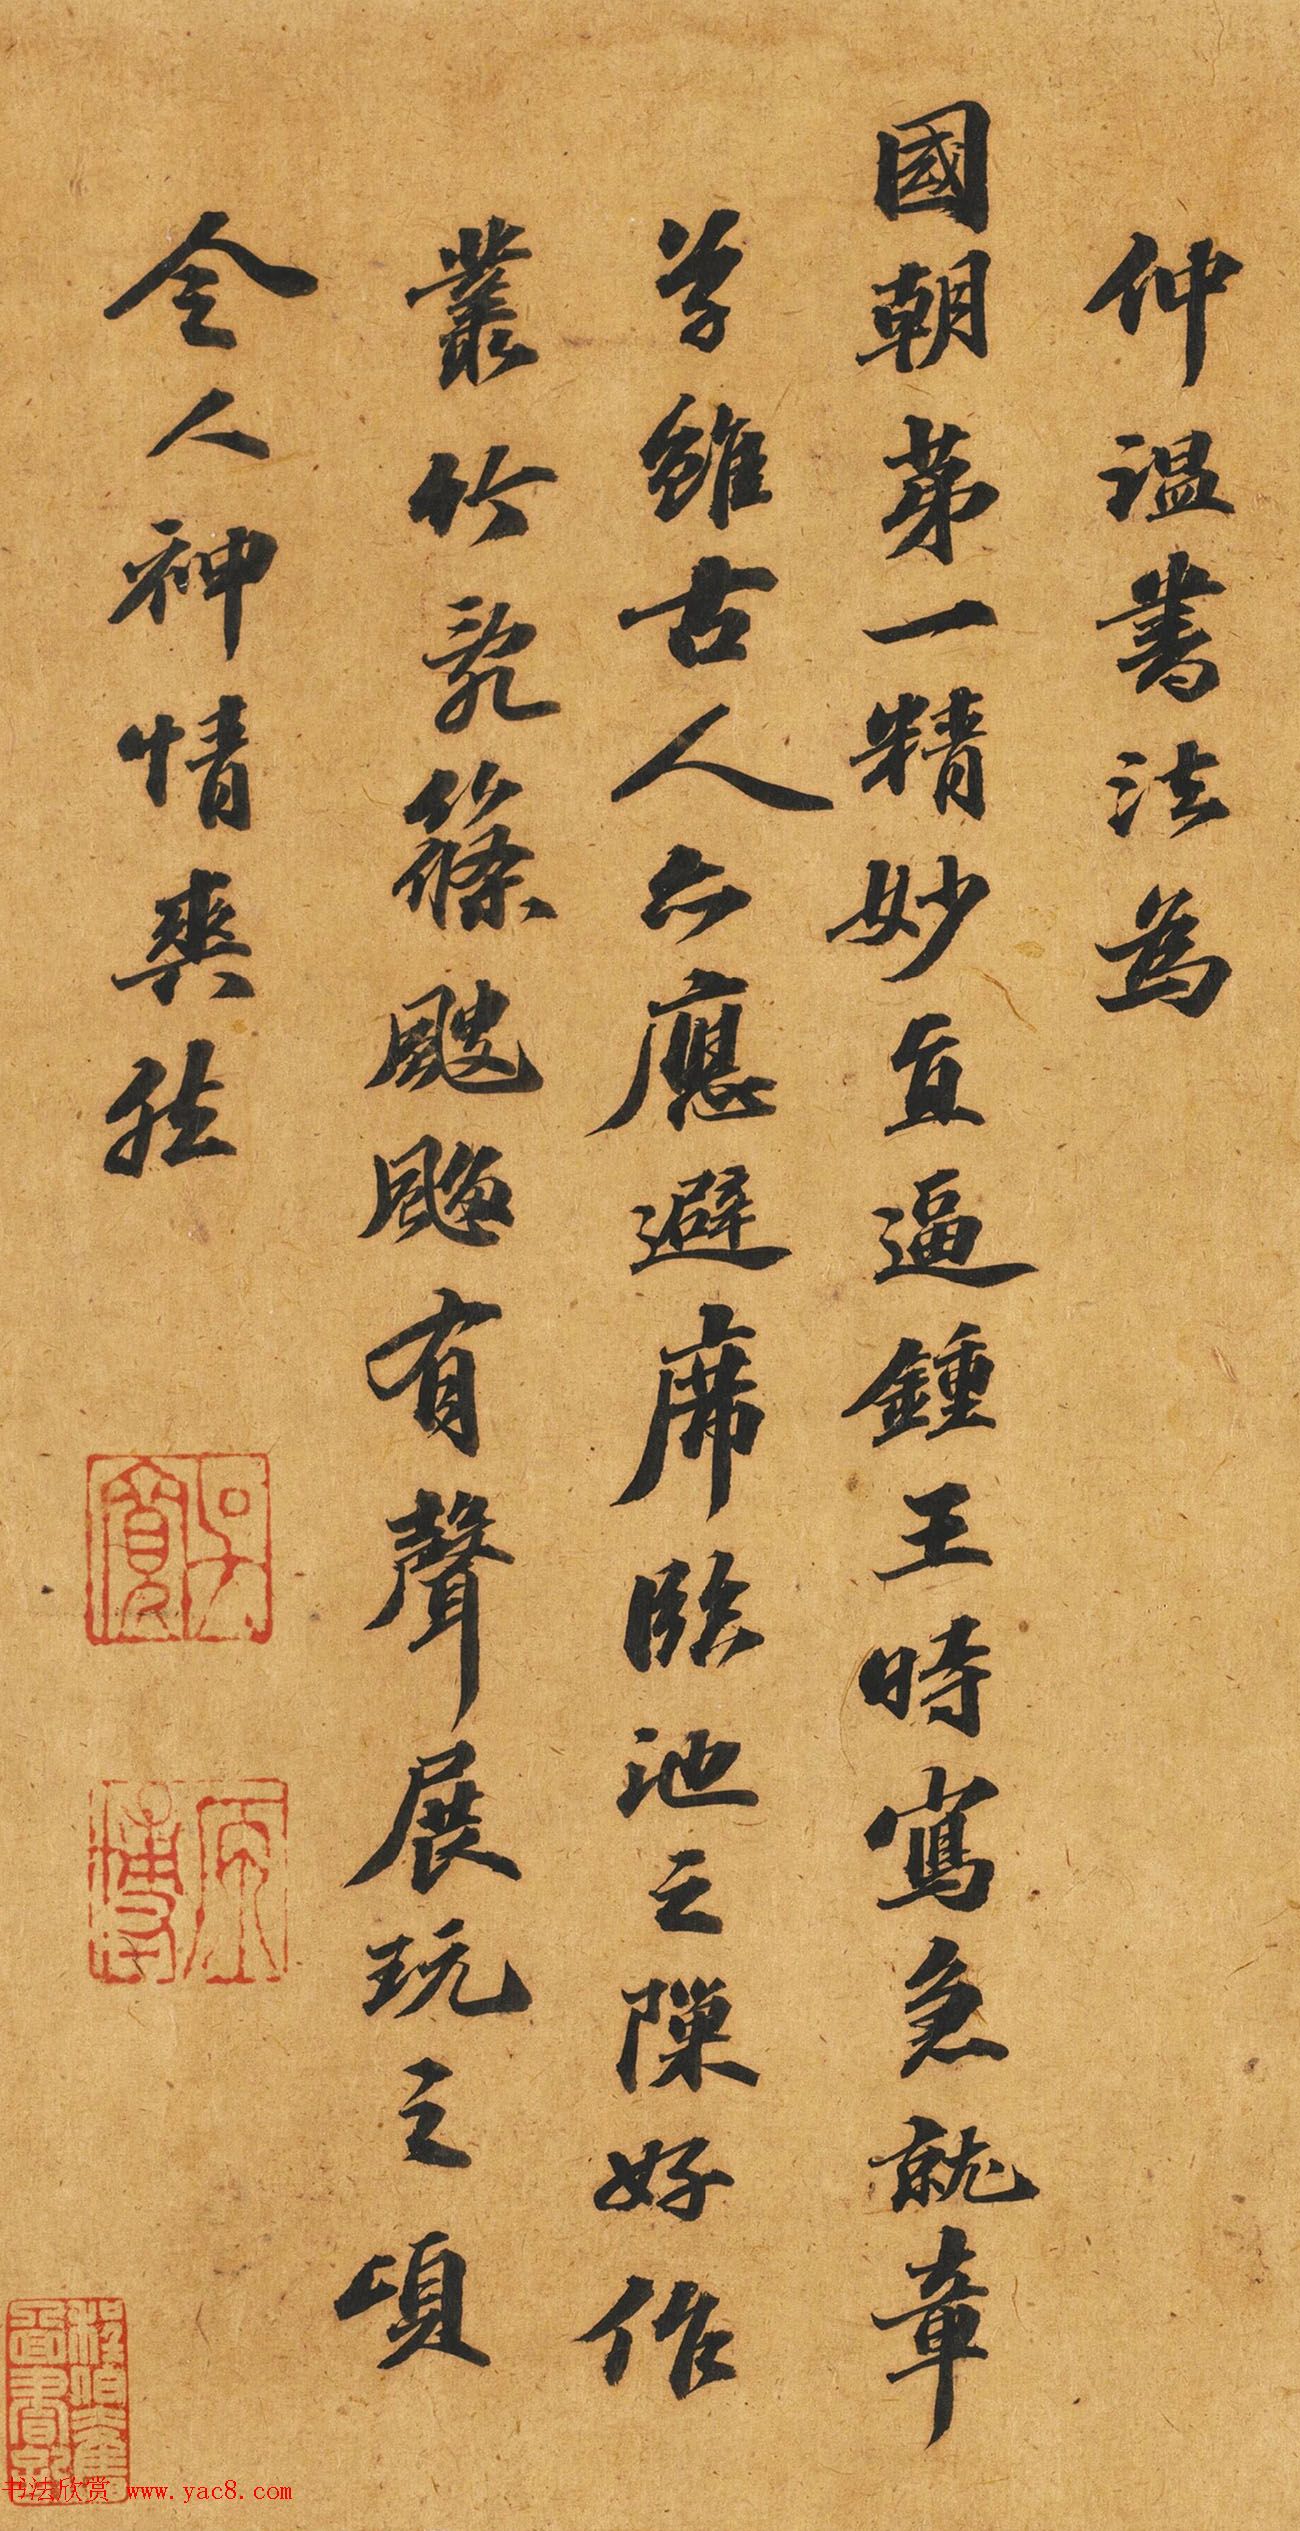 仲溫書法為
國朝第一精妙直逼鍾王時寫急就章
草雖古人亦應避席臨池之隙好作
叢竹亂篠颼颸有聲展玩之頃
令人神情爽然
吳寬
原博
书法欣赏 www.yac8.com